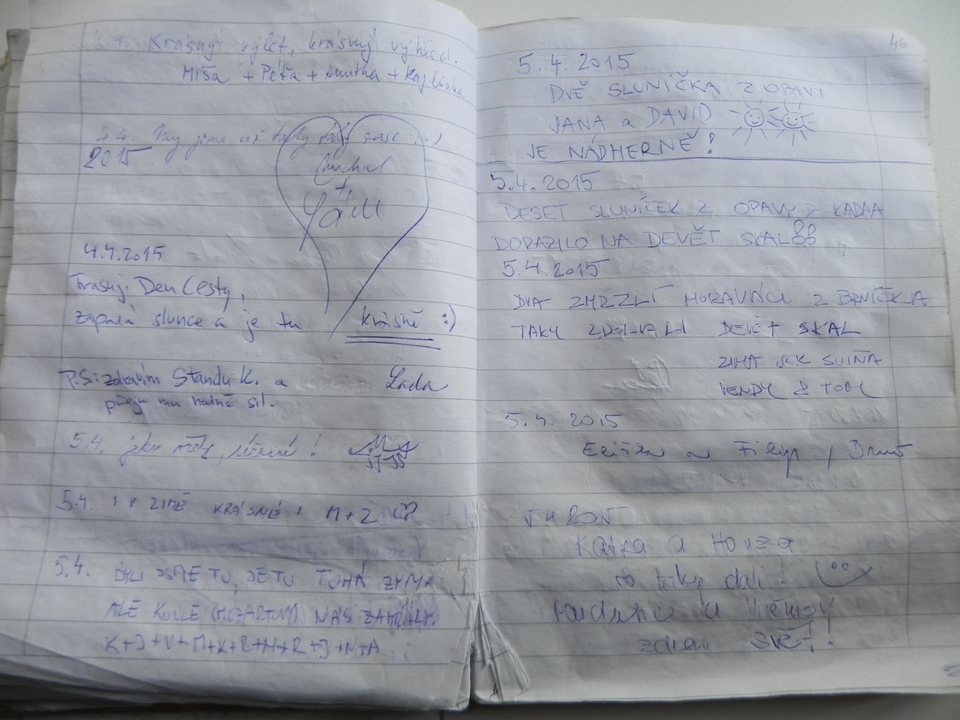 4.4. Krásný výlet, krásný výhled.
Mrša + Péťa + +
5.4. My jsme už tady zase :)
2015
Michal
+
4.4.2015
Den Cesty,
zapadá slunce a je tu krásně :)
P.S.: zdravím Standu K. a Lada
přeju mu hodně sil.
5.4. jako !
5.4. I V ZIMĚ KRÁSNÉ ! M+Z
5.4. BYLI JSME TU, JE TU TUHÁ ZIMA
ALE KOULE (MOZARTOVY) NÁS ZAHŘÁLY
K+J+V+M+K+B+N+R+J+N+A
46
5.4.2015
DVĚ SLUNÍČKA Z OPAVY
JANA a DAVID
JE NÁDHERNĚ!
5.4.2015
DESET SLUNÍČEK Z OPAVY Z
DORAZILO NA DEVĚT SKAL
5.4.2015
DVA ZMRZLÍ MORAVÁCI Z BRNÍČKA
TAKY ZDOLALI DEVĚT SKAL
ZIMA JAK SVIŇA
VENDY & TOBY
5.4.2015
Eliška a Filip, Brno
5.4.2015
Katka a Honza
to taky dali!
Pardubice a
zdraví SVĚT!